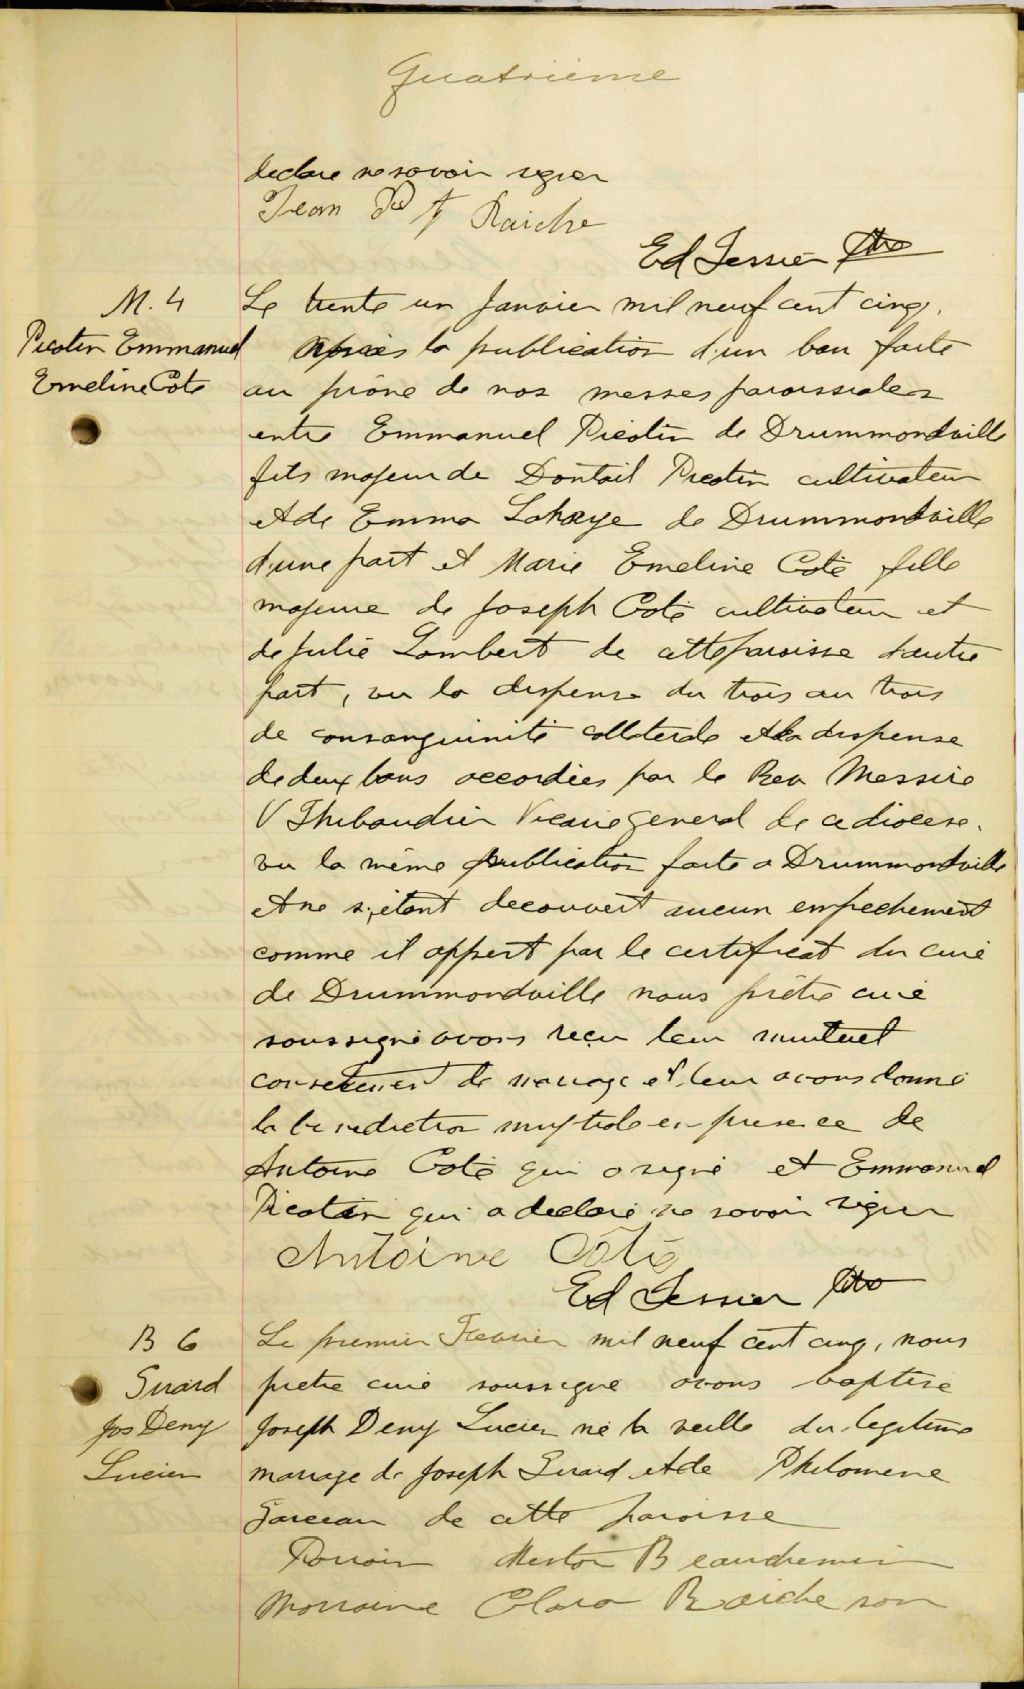 Quatrieme
declare ne savoir signer
Jean Raiche
Ed Tessier Ptre
M. 4
Picotin Emmanuel
Emeline Cote
Le trente un Janvier mil neuf cent cinq,
Après la publication d'un ban faite
au prône de nos messes paroissiales
entre Emmanuel Picotin de Drummondville
fils majeur de Picotin cultivateur
et de Emma Lahaye de Drummondville
d'une part et Marie Emeline Coté fille
majeure de Joseph Coté cultivateur et
de Julie Lambert de cette paroisse d'autre
part, vu la dispense du trois au trois
de consanguinité collaterale et la dispense
de deux bans accordées par le Rev Messire
V Thibaudier Vicaire general de ce diocese.
vu la même publication faite a Drummondville
et ne s'étant decouvert aucun empechement
comme il appert par le certificat du curé
de Drummondville nous prêtre curé
soussigné avons reçu leur mutuel
consentement de mariage et leur avons donné
la benediction nuptiale en presence de
Antoine Coté qui a signé et Emmanuel
Picotin qui a declaré ne savoir signer
Antoine Côté
Ed Tessier Ptre
B 6
Girard
Jos Deny
Lucien
Le premier Fevrier mil neuf cent cinq, nous
pretre curé soussigné avons baptisé
Joseph Deny Lucien né la veille du legitime
mariage de Joseph Girard et de Philomene
Garceau de cette paroisse
Parrain Beauchemin
Marraine Clara Raiche son